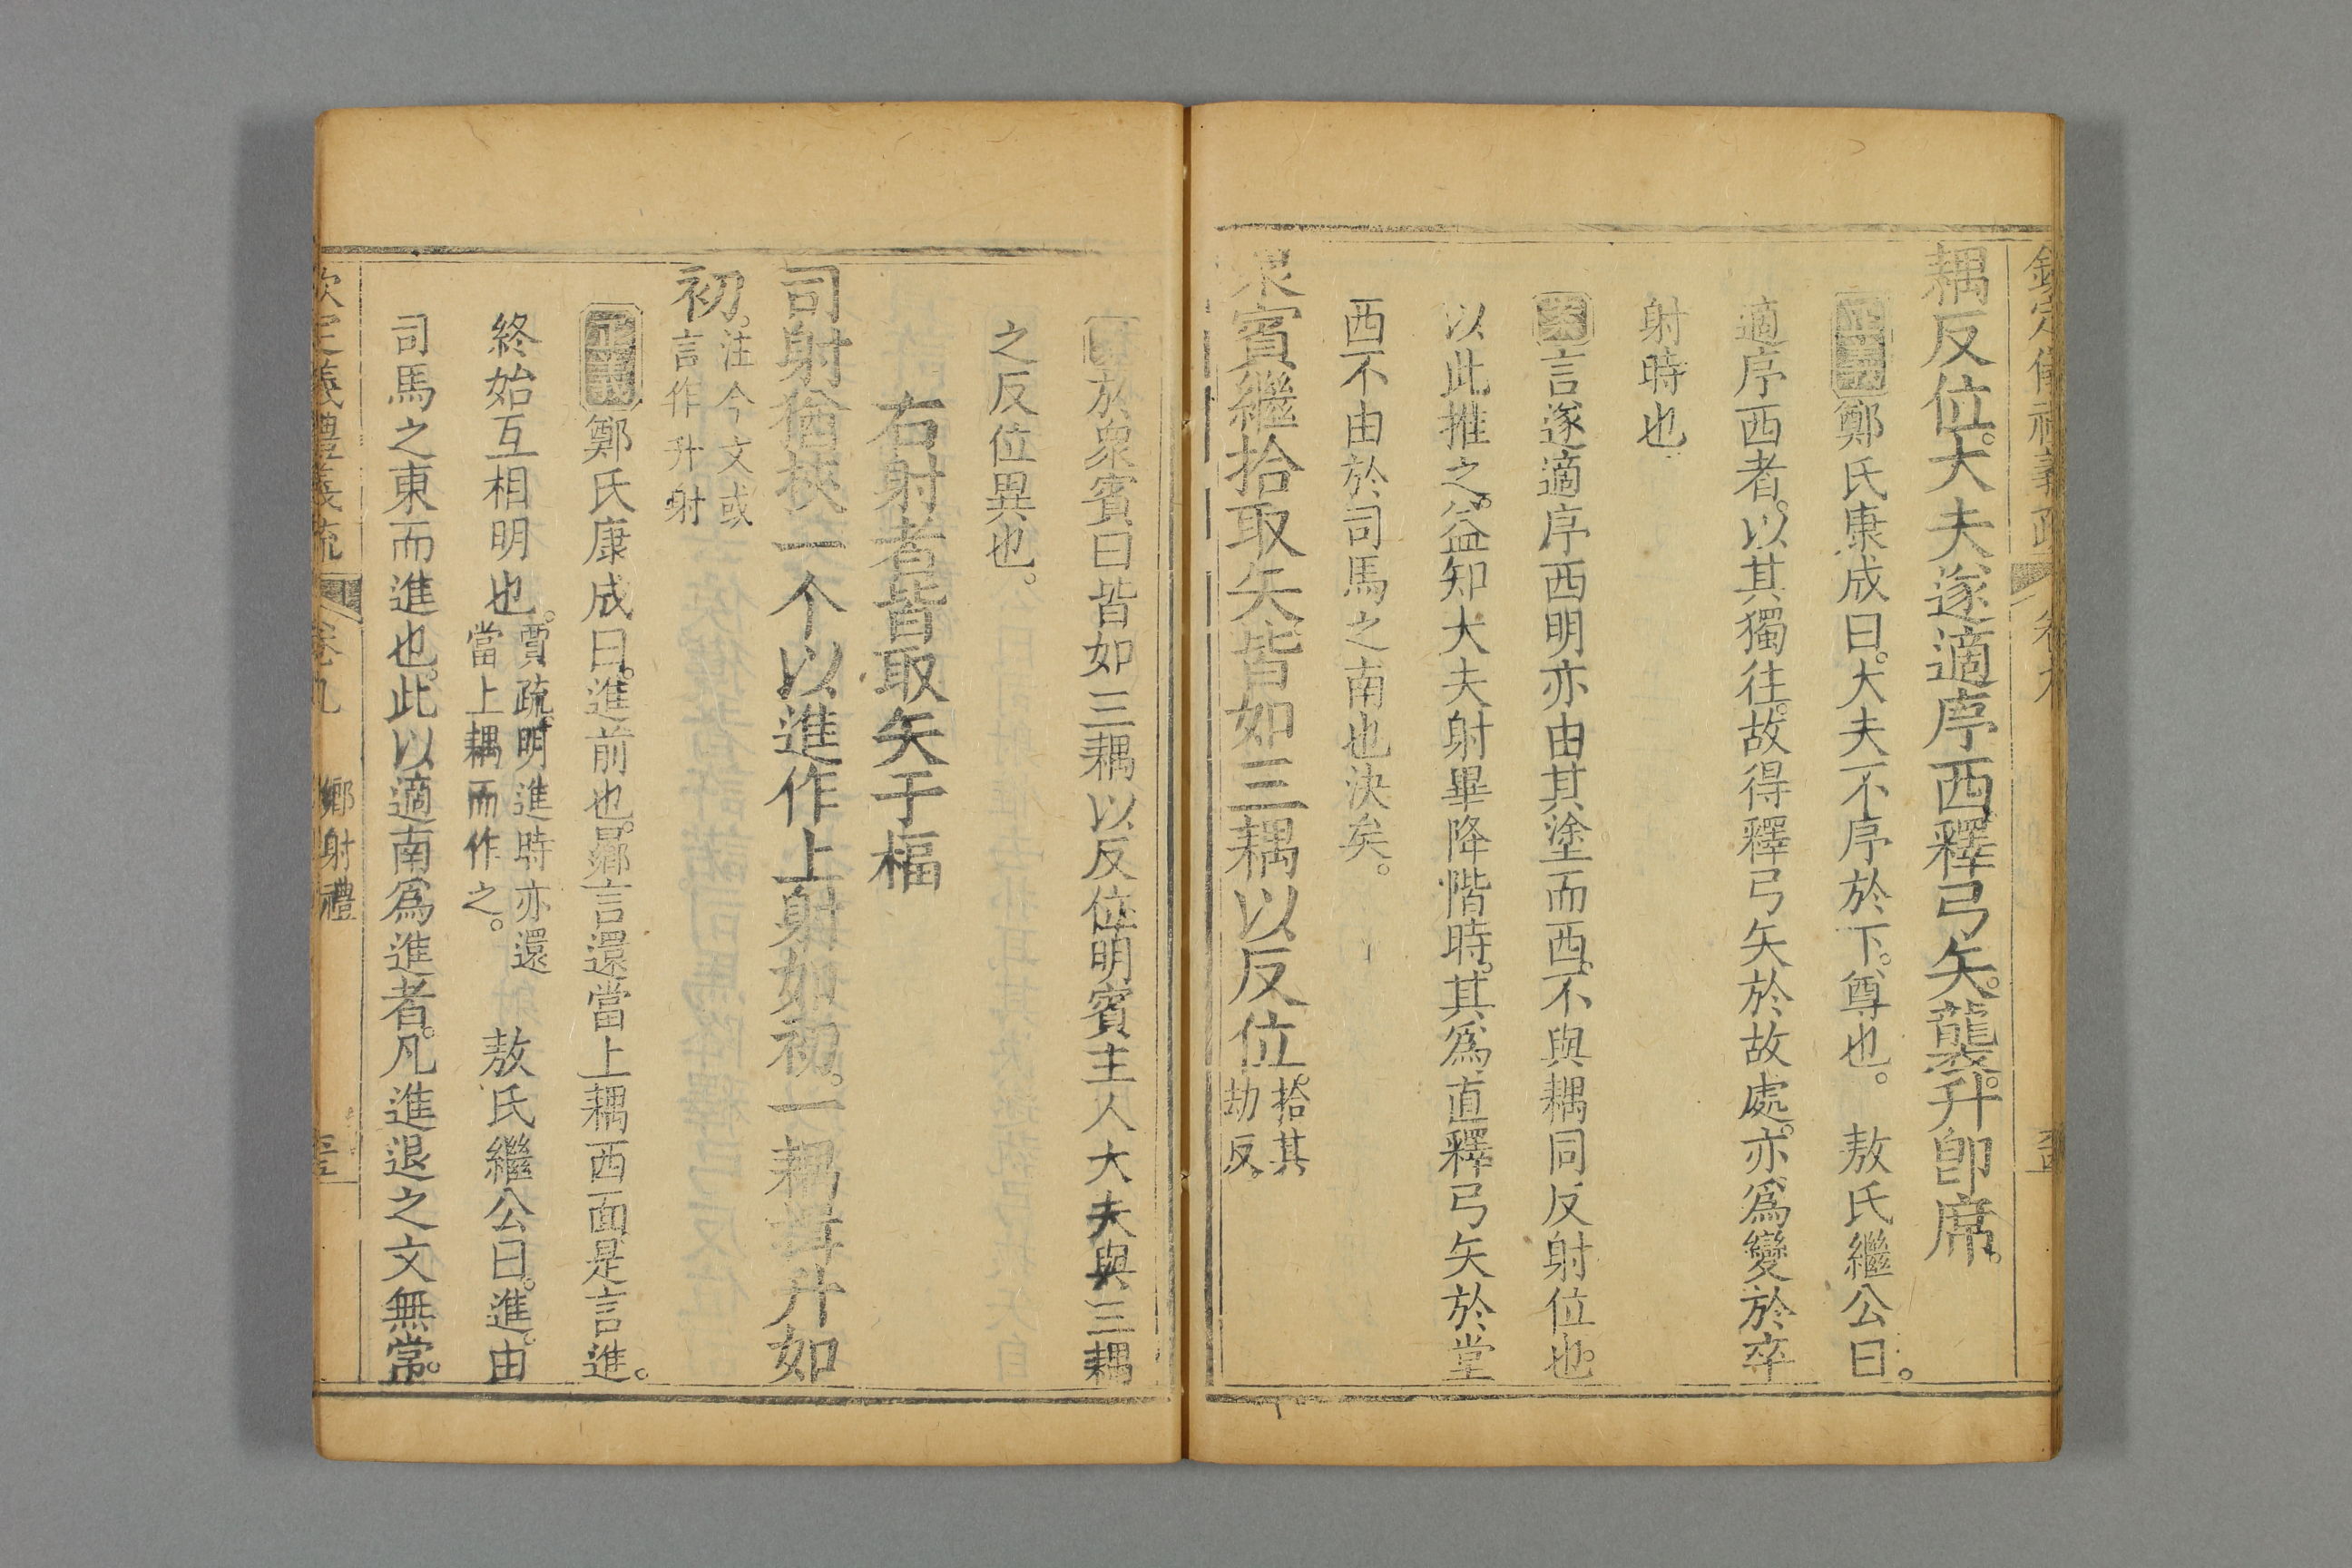 耦反位。大夫遂適序西釋弓矢。襲。升卽席。
正義鄭氏康成曰。大夫不序於下。尊也。 敖氏繼公曰。
適序西者。以其獨往。故得釋弓矢於故處。亦爲變於卒
射時也
案言遂適序西明亦由其塗而西。不與耦同反射位也。
以此推之。益知大夫射畢降階時。其爲直釋弓矢於堂
西不由於司馬之南也決矣。
衆賓繼拾取矢皆如三耦以反位。拾其
劫反。
欽定儀禮義疏 卷九
案於衆賓曰皆如三耦以反位明賓主人大夫與三耦
之反位異也。
右射者皆取矢于楅
司射猶挾一个以進作上射如初。一耦揖升如
初。注今文或
言作升射
正義鄭氏康成曰。進前也。曏言還當上耦西面是言進。
終始互相明也。賈疏。明進時亦還
當上耦而作之。 敖氏繼公曰。進。由
司馬之東而進也。此以適南爲進者。凡進退之文無常。
欽定義禮義疏 卷九 鄉射禮